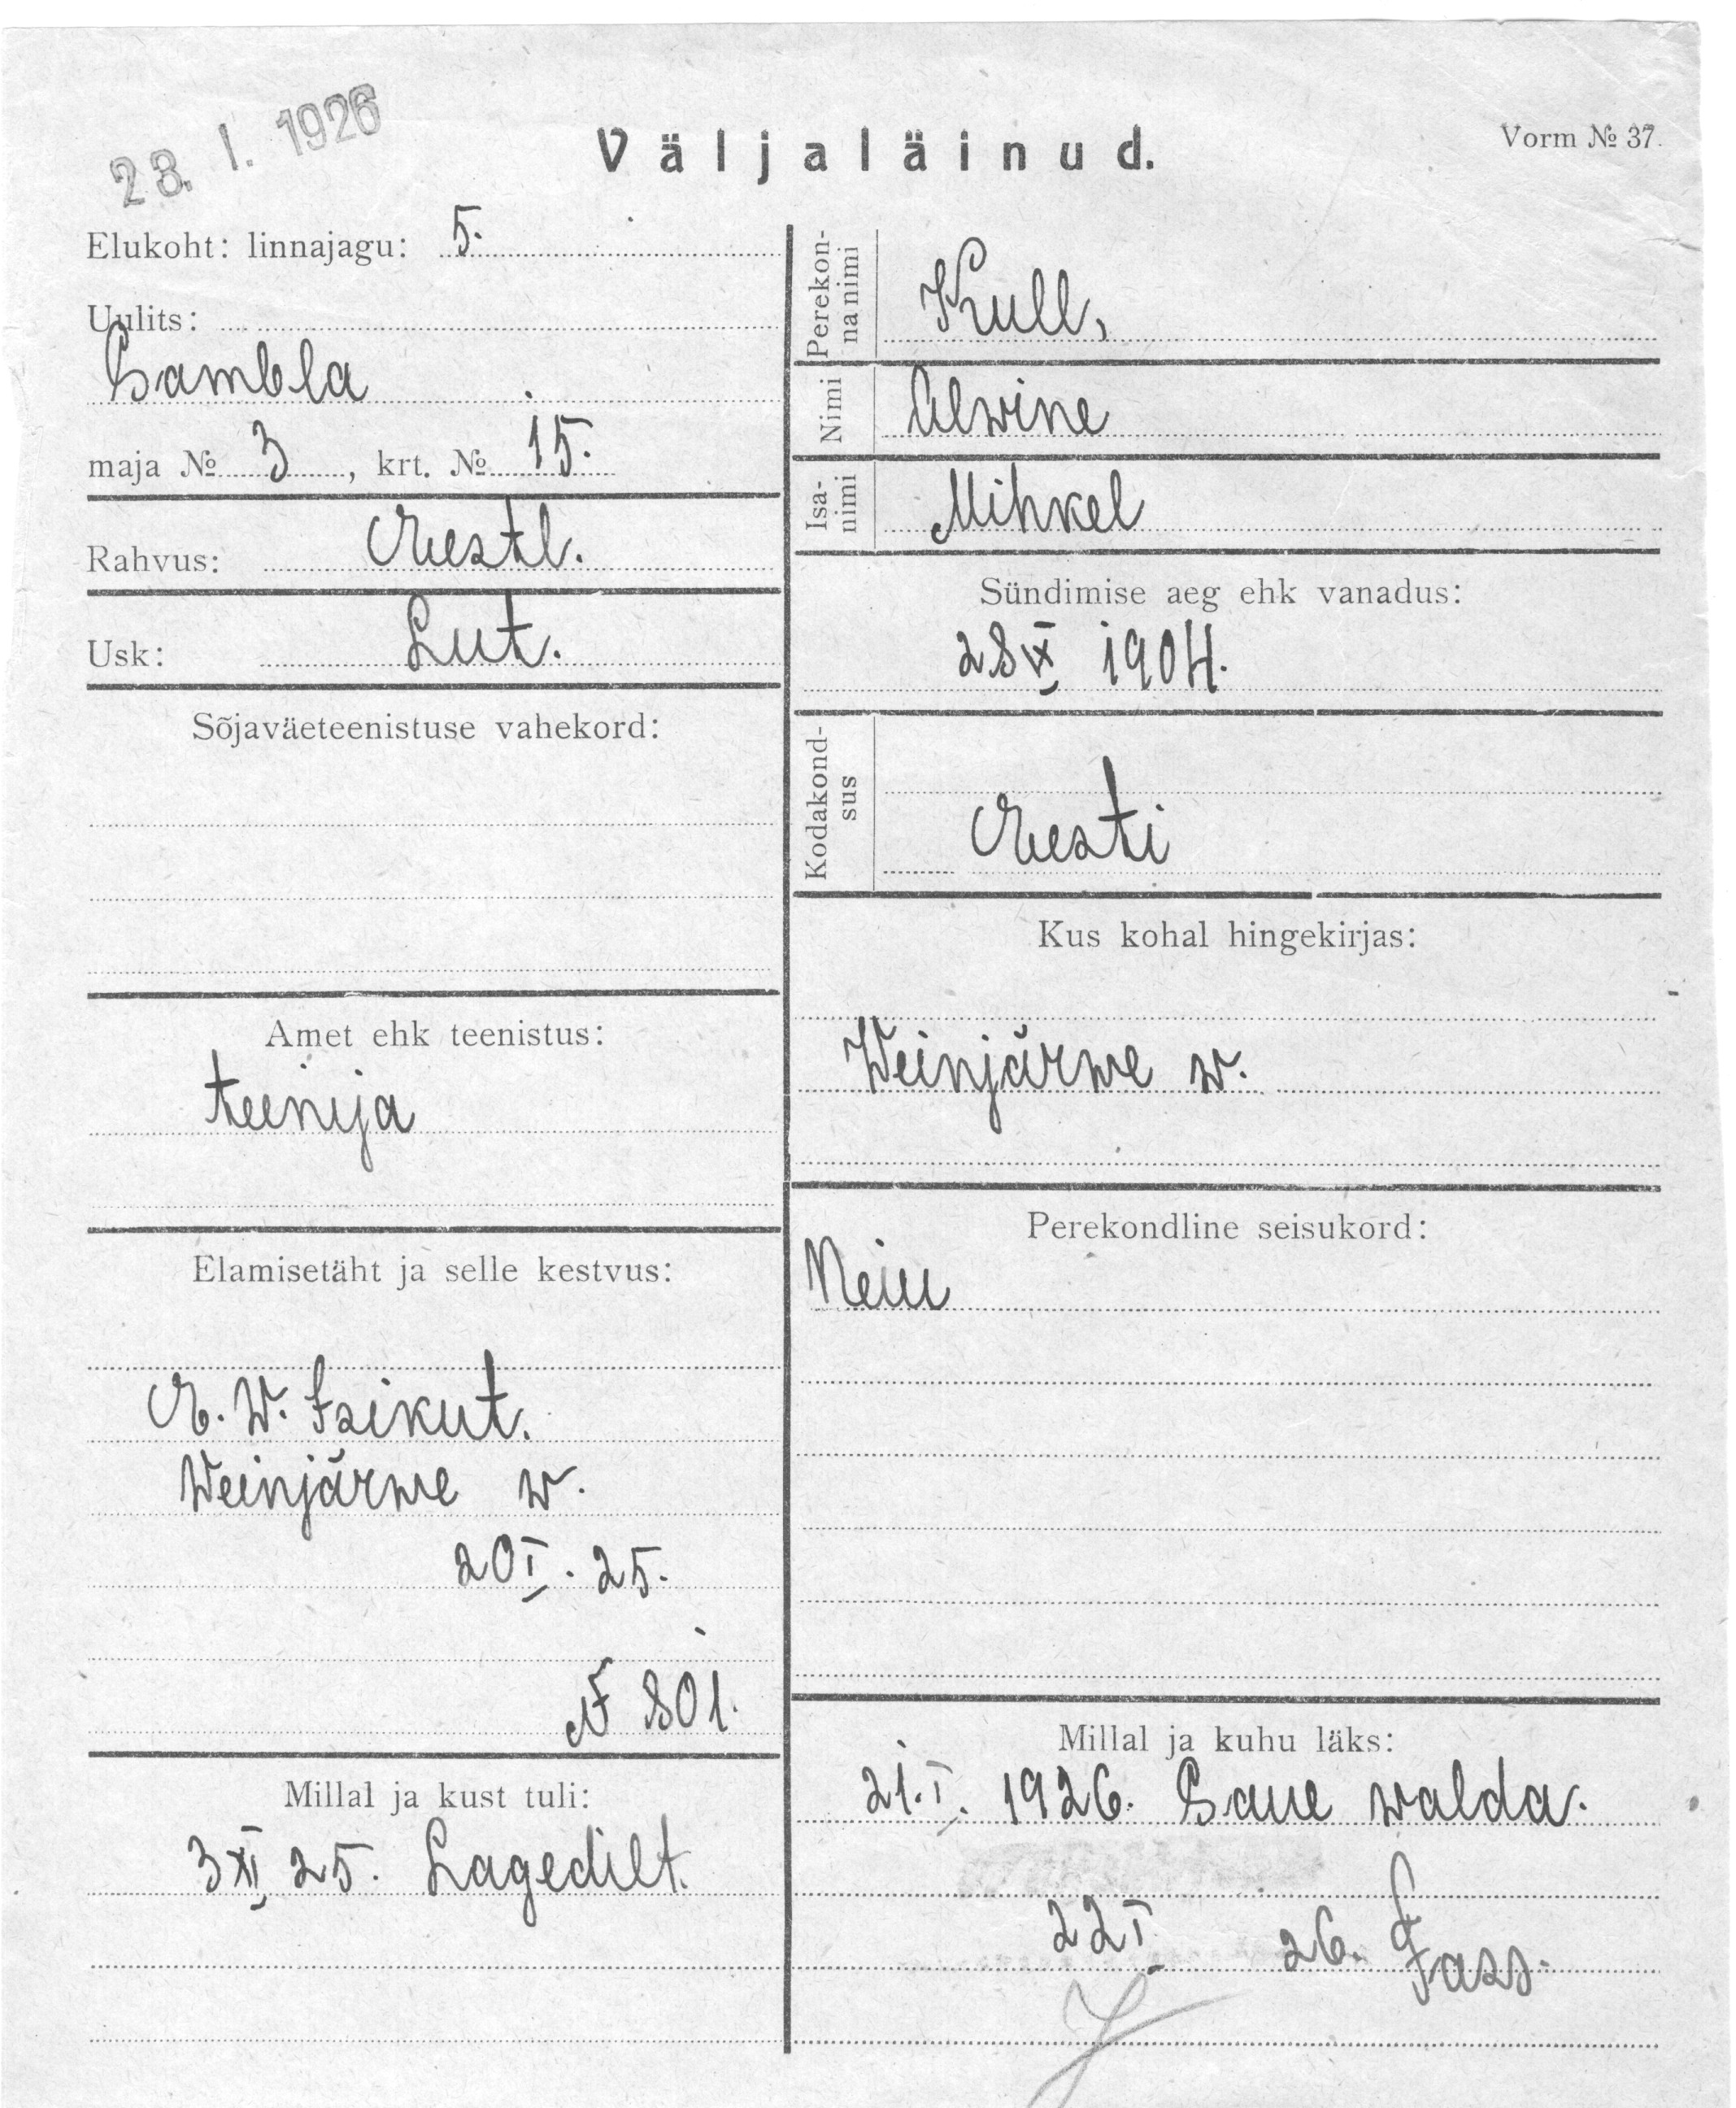 23. I. 1926
Väljaläinud.
Vorm № 37.
Elukoht: linnajagu: 5.
Uulits:
Sambla
maja № 3, krt. № 15.
Rahvus: Eestl.
Usk: Lut.
Sõjaväeteenistuse vahekord:
Amet ehk teenistus:
teenija
Elamisetäht ja selle kestvus:
E. W. Isikut.
Weinjärwe w.
20 I. 25.
№ 801.
Millal ja kust tuli:
3 XI 25. Lagedilt.
Perekonna nimi
Kull,
Nimi
Alwine
Isanimi
Mihkel
Sündimise aeg ehk vanadus:
28 IX 1904.
Kodakondsus
Eesti
Kus kohal hingekirjas:
Weinjärwe w.
Perekondline seisukord:
Neiu
Millal ja kuhu läks:
21. I. 1926. Saue walda.
22 I 26.